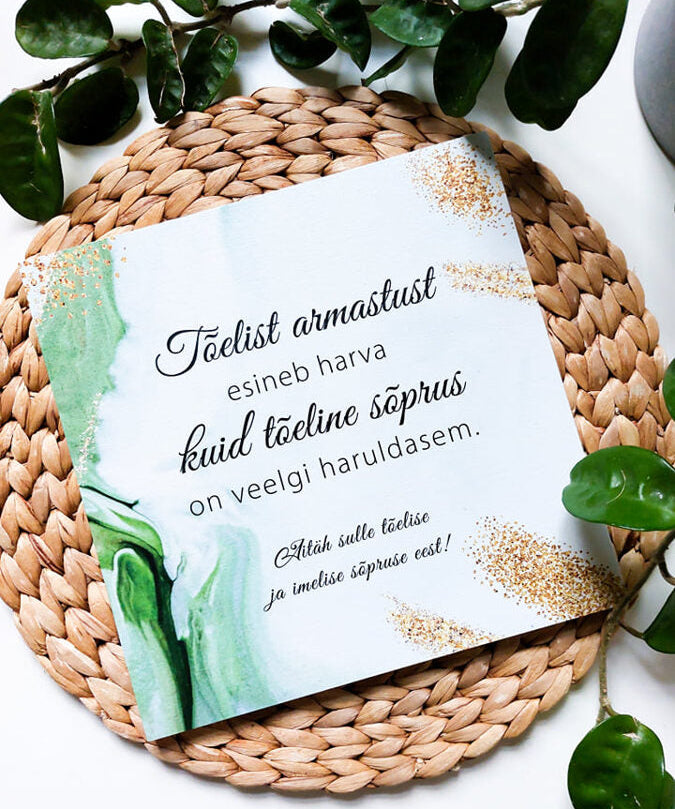 Tõelist armastust
esineb harva
kuid tõeline sõprus
on veelgi haruldasem.
Aitäh sulle tõelise
ja imelise sõpruse eest!